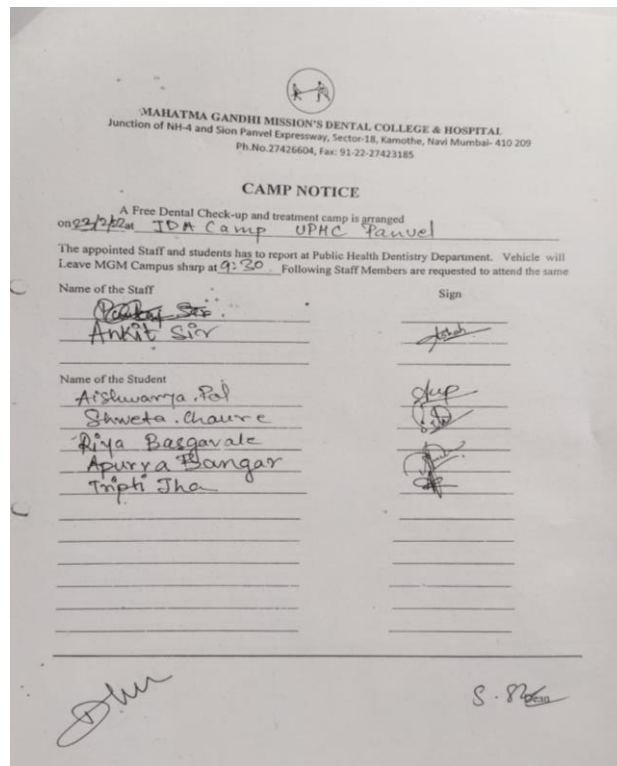 MAHATMA GANDHI MISSION'S DENTAL COLLEGE & HOSPITAL
Junction of NH-4 and Sion Panvel Expressway, Sector-18, Kamothe, Navi Mumbai- 410 209
Ph.No.27426604, Fax: 91-22-27423185
CAMP NOTICE
A Free Dental Check-up and treatment camp is arranged
on 23/2/22 at IDA Camp UPHC Panvel
The appointed Staff and students has to report at Public Health Dentistry Department. Vehicle will
Leave MGM Campus sharp at 9:30. Following Staff Members are requested to attend the same
Name of the Staff Sign
Ankit Sir
Name of the Student
Aishwarya.Pal
Shweta.Chaure
Riya Basgavale
Apurva Bangar
Tripti Jha
Dean